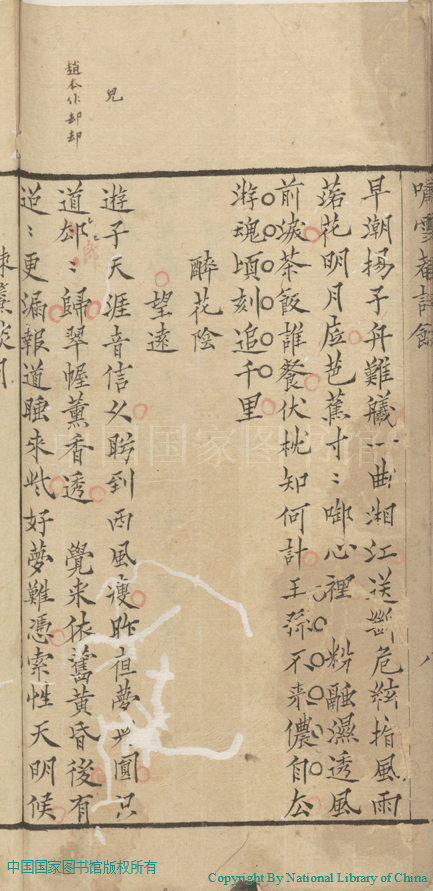 嘯雪菴詩餘
早潮揚子舟難艤一曲湘江送斷危絃指風雨
落花明月虛芭蕉寸〻啣心裡　粉融濕透風
前淚茶飯誰餐伏枕知何計王孫不来儂自去
游魂頃刻追千里
醉花陰
望遠
遊子天涯音信久盻到西風瘦昨夜夢兒圓只
道郄〻歸翠幄薰香透　覺来依舊黄昏後有
迢〻更漏報道睡来些好夢難憑索性天明候
兒
趙本作却却
八
中国国家图书馆
中国国家图书馆版权所有
Copyright By National Library of China.